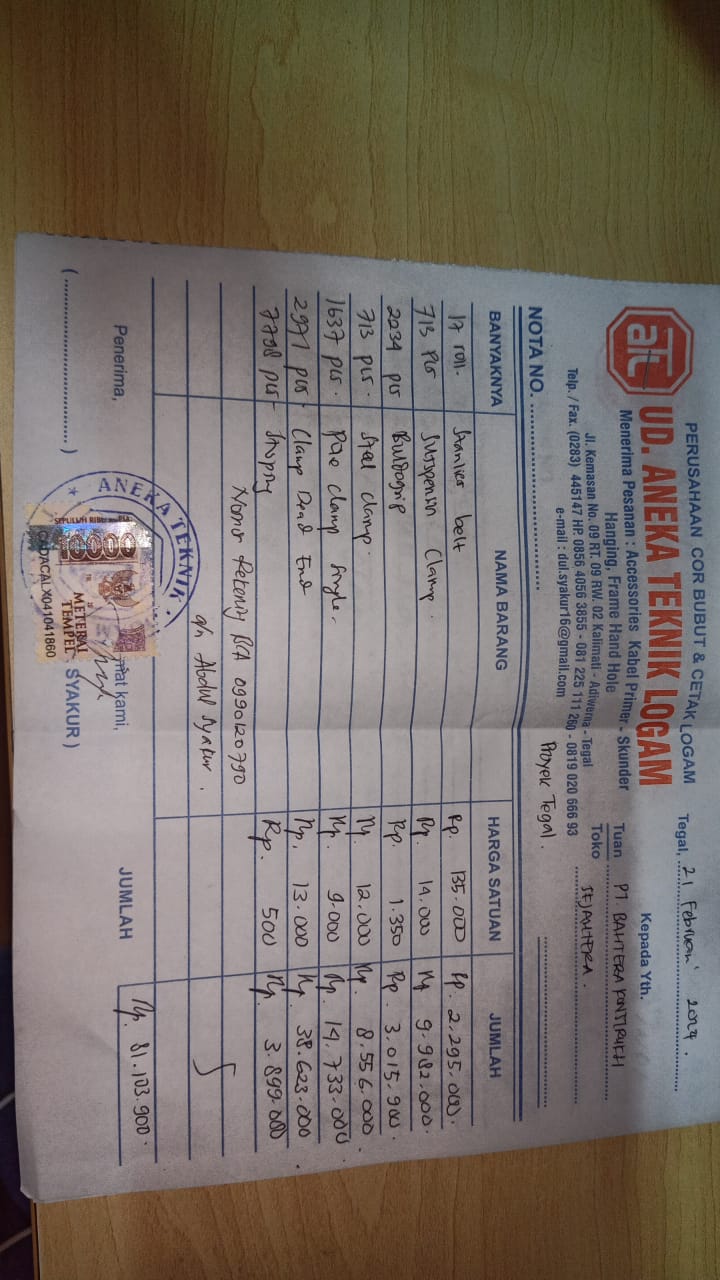 PERUSAHAAN COR BUBUT & CETAK LOGAM
ATL
UD. ANEKA TEKNIK LOGAM
Menerima Pesanan : Accessories Kabel Primer - Skunder
Hanging, Frame Hand Hole
Jl. Kemasan No. 09 RT. 09 RW. 02 Kalimati - Adiwerna - Tegal
Telp. / Fax. (0283) 445147 HP. 0856 4056 3855 - 081 225 111 260 - 0819 020 666 93
e-mail : dul.syakur16@gmail.com
Tegal, 21 Februari
Kepada Yth.
Tuan PT. BAHTERA
Toko SEJAHTERA.
NOTA NO. ........................ Proyek Tegal.
BANYAKNYA NAMA BARANG HARGA SATUAN JUMLAH
17 roll. Stanlies belt Rp. 135.000 Rp. 2.295.000.
713 pcs Suspensin Clamp. Rp. 14.000 Rp 9.982.000.
2234 pcs Buldogrip Rp. 1.350 Rp. 3.015.900.
713 pcs. Stel Clamp. Rp. 12.000 Rp. 8.556.000.
1637 pcs. Pole Clamp Single. Rp. 9.000 Rp. 14.733.000
2971 pcs. Clamp Dead End Rp. 13.000 Rp. 38.623.000
7798 pcs. Rp. 500 Rp. 3.899.000
Nomor Rekening BCA 0990120790
a/n Abdul Syakur.
JUMLAH Rp. 81.103.900.
Penerima,
mat kami,
(........................)
SYAKUR )
ANEKA TEKNIK
SEPULUH RIBU RUPIAH
10000
METERAI
TEMPEL
CADACALX041041860